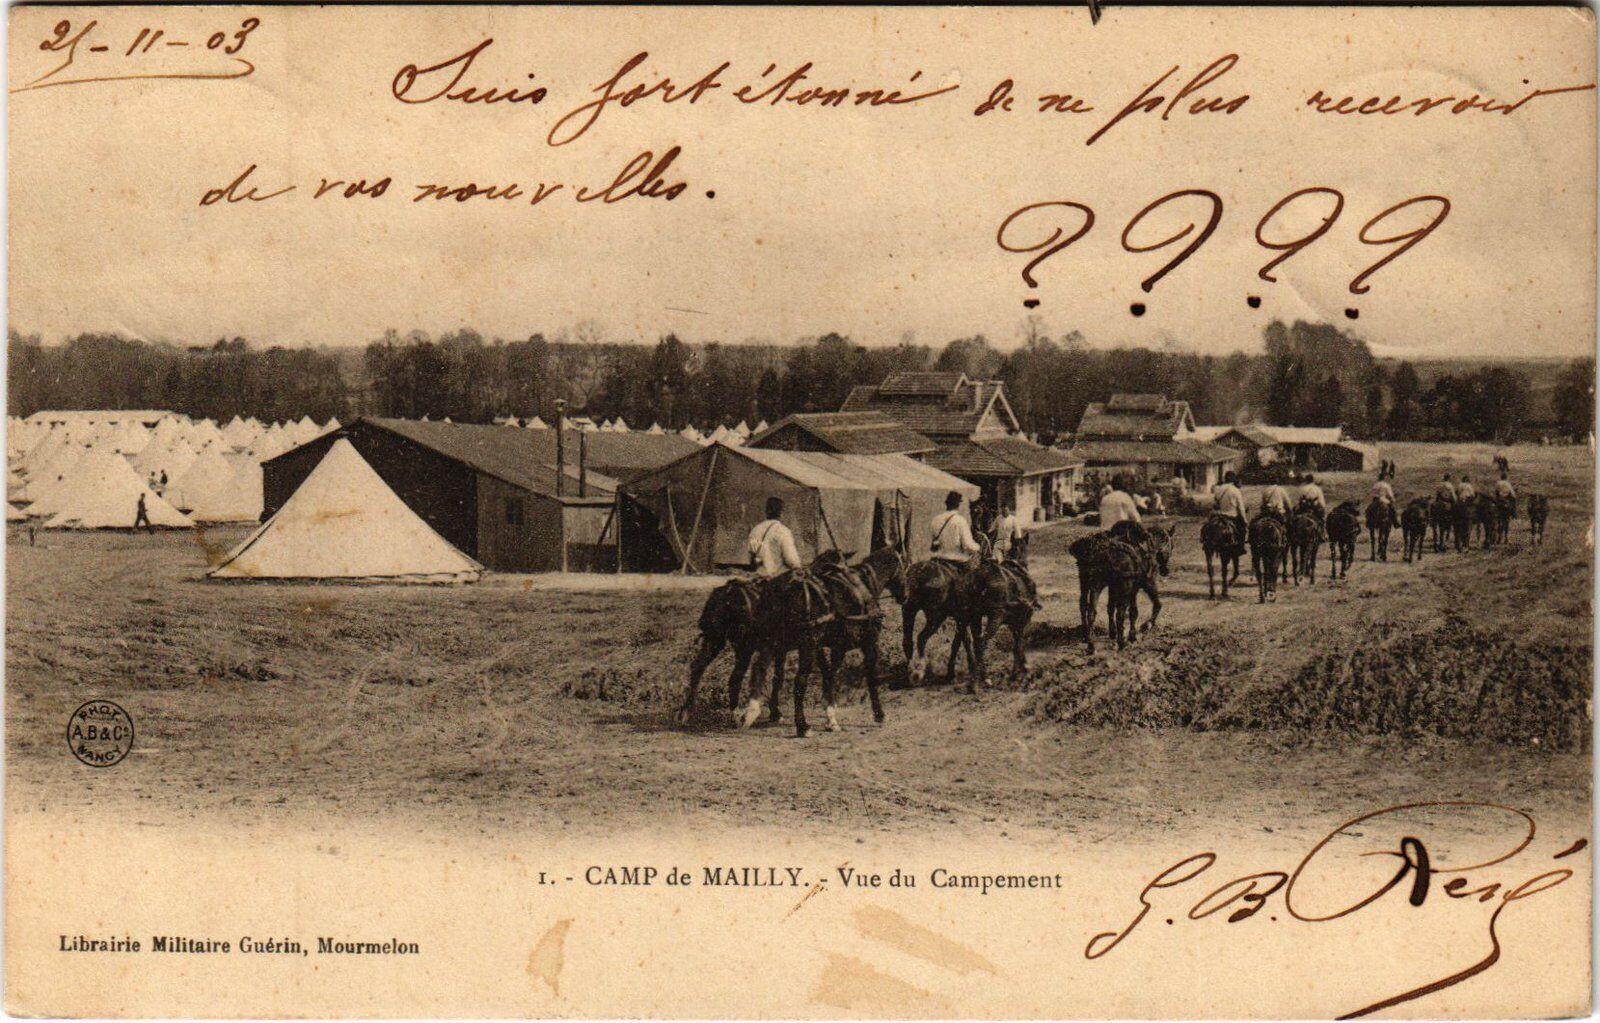 25-11-03
Suis fort étonné de ne plus recevoir
de vos nouvelles.
? ? ? ?
PHOT.
A.B & Cº
NANCY
1. - CAMP de MAILLY. - Vue du Campement
G. B. René
Librairie Militaire Guérin, Mourmelon